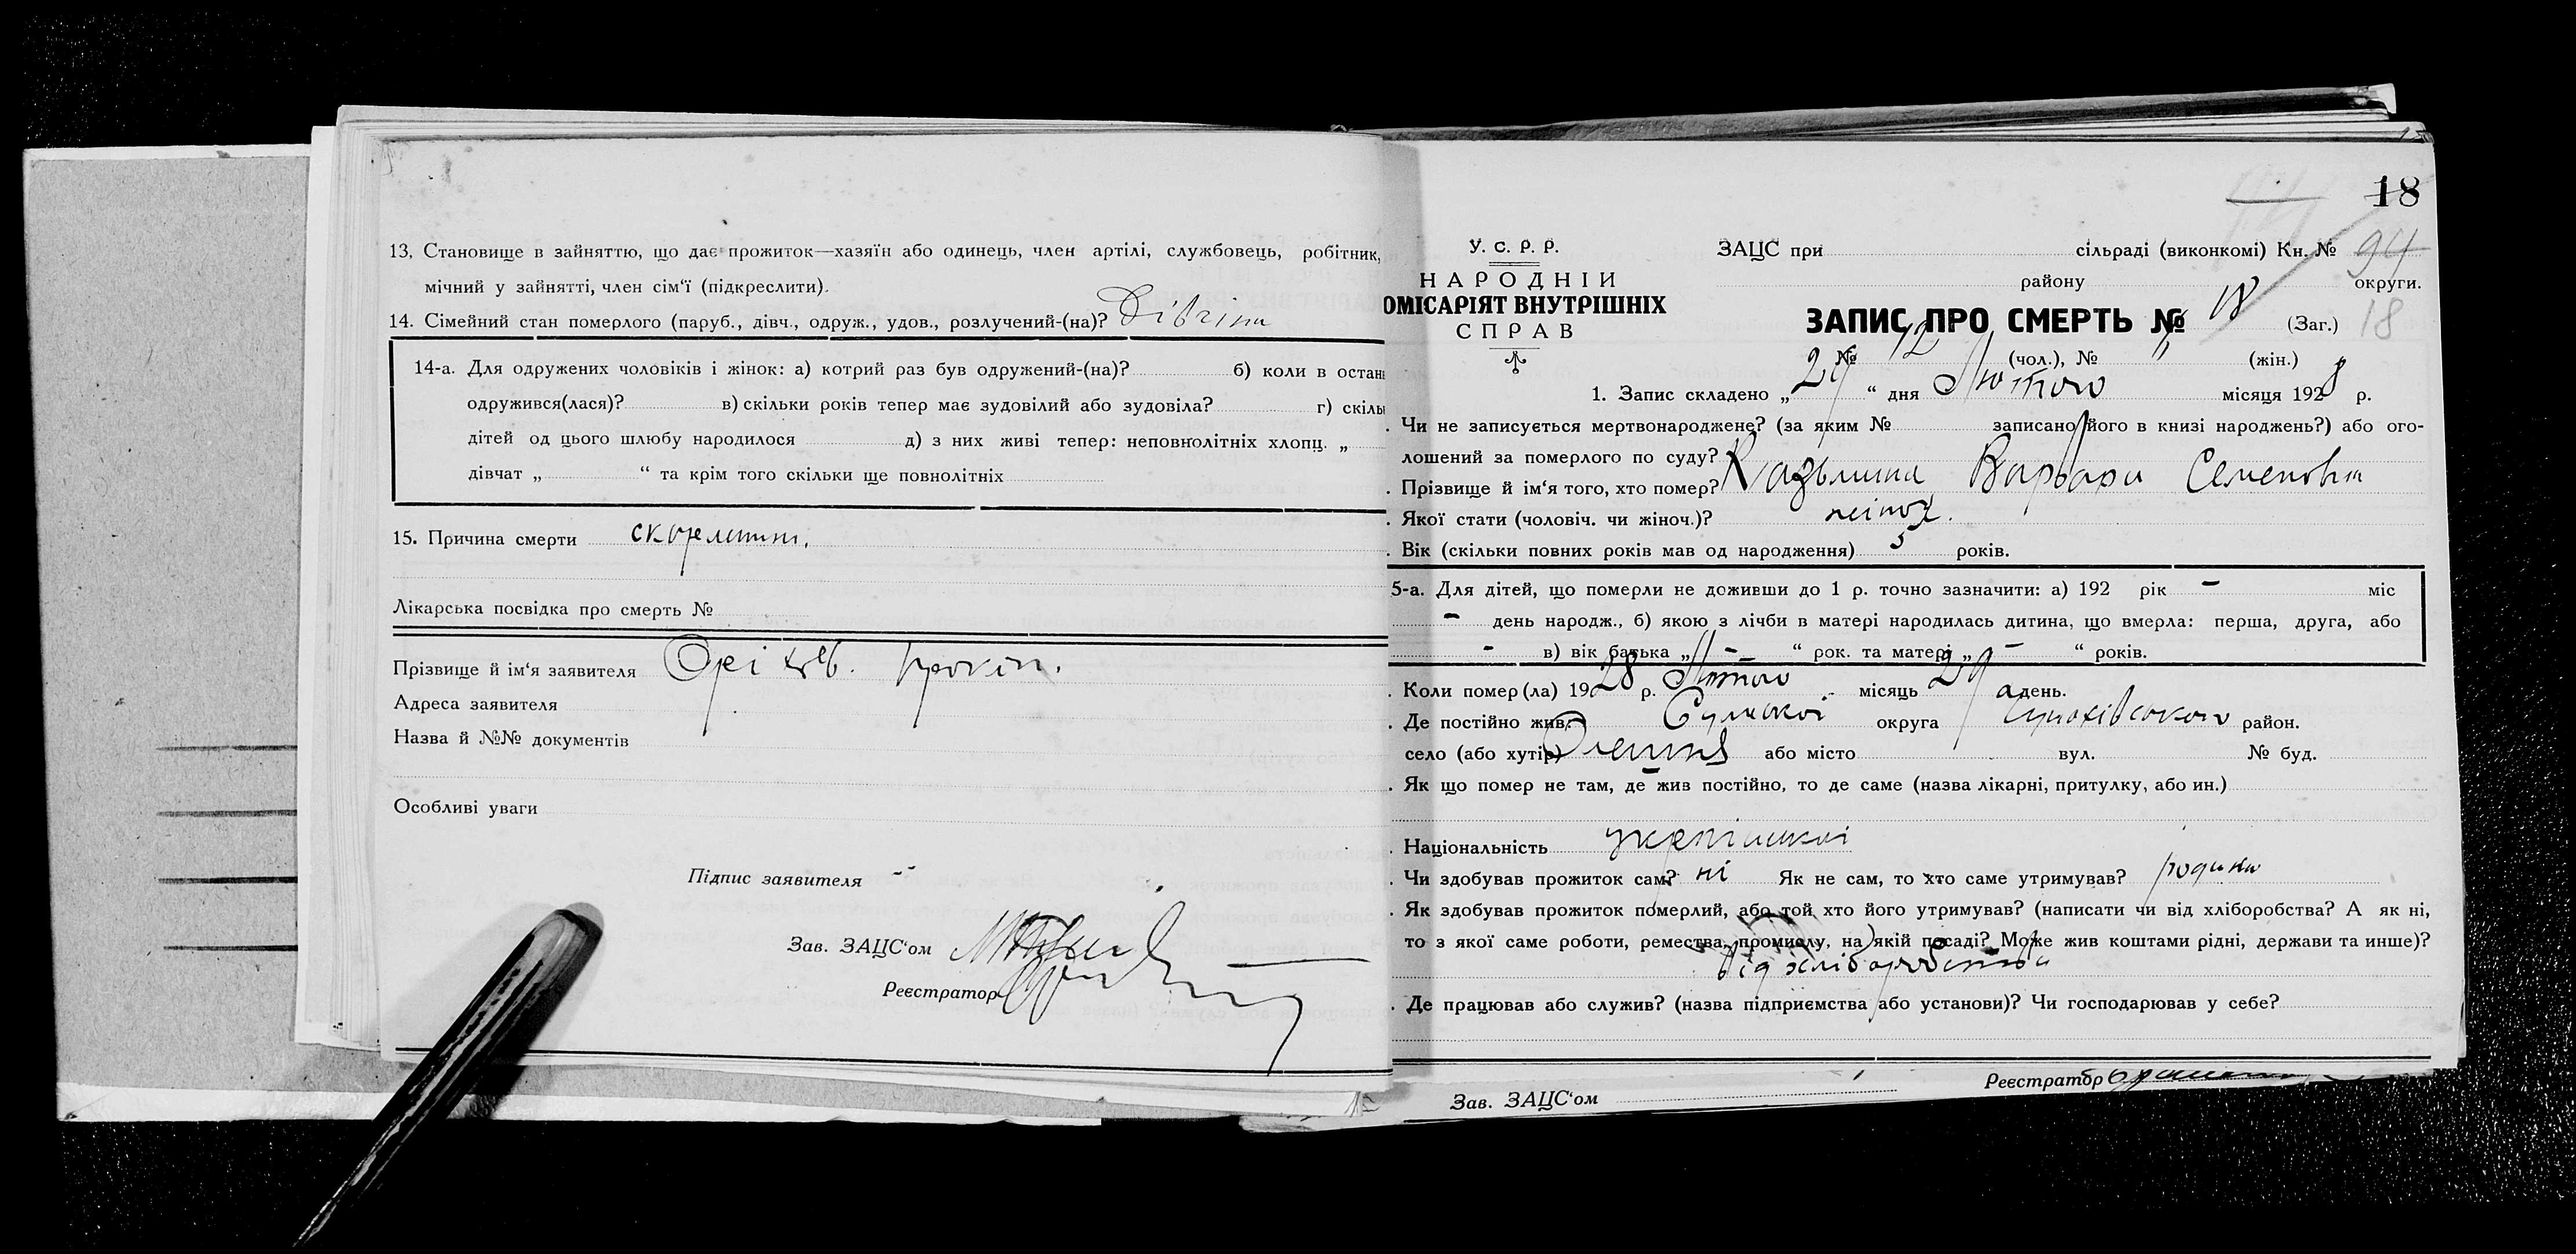 13. Становище в зайняттю, що дає прожиток—хазяїн або одинець, член артілі, службовець, робітник,
мічний у зайнятті, член сім‘ї (підкреслити).
14. Сімейний стан померлого (паруб., дівч., одруж., удов., розлучений-(на)? Дівчина
14-а. Для одружених чоловіків і жінок: а) котрий раз був одружений-(на)? б) коли в остан
одружився(лася)? в) скільки років тепер має зудовілий або зудовіла? г) скіль
дітей од цього шлюбу народилося д) з них живі тепер: неповнолітніх хлопц. „
дівчат „ “ та крім того скільки ще повнолітніх
15. Причина смерти
Лікарська посвідка про смерть №
Прізвище й ім‘я заявителя
Адреса заявителя
Назва й №№ документів
Особливі уваги
Підпис заявителя
Зав. ЗАЦС‘ом
Реєстратор
18
У. С. Р. Р.
НАРОДНІЙ
ОМІСАРІЯТ ВНУТРІШНІХ
СПРАВ
ЗАЦС при сільраді (виконкомі) Кн. № 94
району округи.
ЗАПИС ПРО СМЕРТЬ № 18 (Заг.) 18
№ 12 (чол.), № (жін.)
1. Запис складено „ 29 “ дня Лютого місяця 1928 р.
. Чи не записується мертвонароджене? (за яким № записано його в книзі народжень?) або ого-
лошений за померлого по суду?
. Прізвище й ім‘я того, хто помер? Варвара Семеновна
. Якої стати (чоловіч. чи жіноч.)? жіноч.
. Вік (скільки повних років мав од народження) 5 років.
5-а. Для дітей, що померли не доживши до 1 р. точно зазначити: а) 192 рік - міс
- день народж., б) якою з лічби в матері народилась дитина, що вмерла: перша, друга, або
- в) вік батька „ - “ рок. та матері „ - “ років.
. Коли помер(ла) 1928 р. Лютого місяць 29 день.
. Де постійно жив? Сумської округа район.
село (або хутір) або місто вул. № буд.
. Як що помер не там, де жив постійно, то де саме (назва лікарні, притулку, або ин.)
. Національність
. Чи здобував прожиток сам? ні Як не сам, то хто саме утримував? родина
. Як здобував прожиток померлий, або той хто його утримував? (написати чи від хліборобства? А як ні,
то з якої саме роботи, ремества, промислу, на якій посаді? Може жив коштами рідні, держави та инше)?
від хліборобства
. Де працював або служив? (назва підприємства або установи)? Чи господарював у себе?
Зав. ЗАЦС‘ом Реєстратор